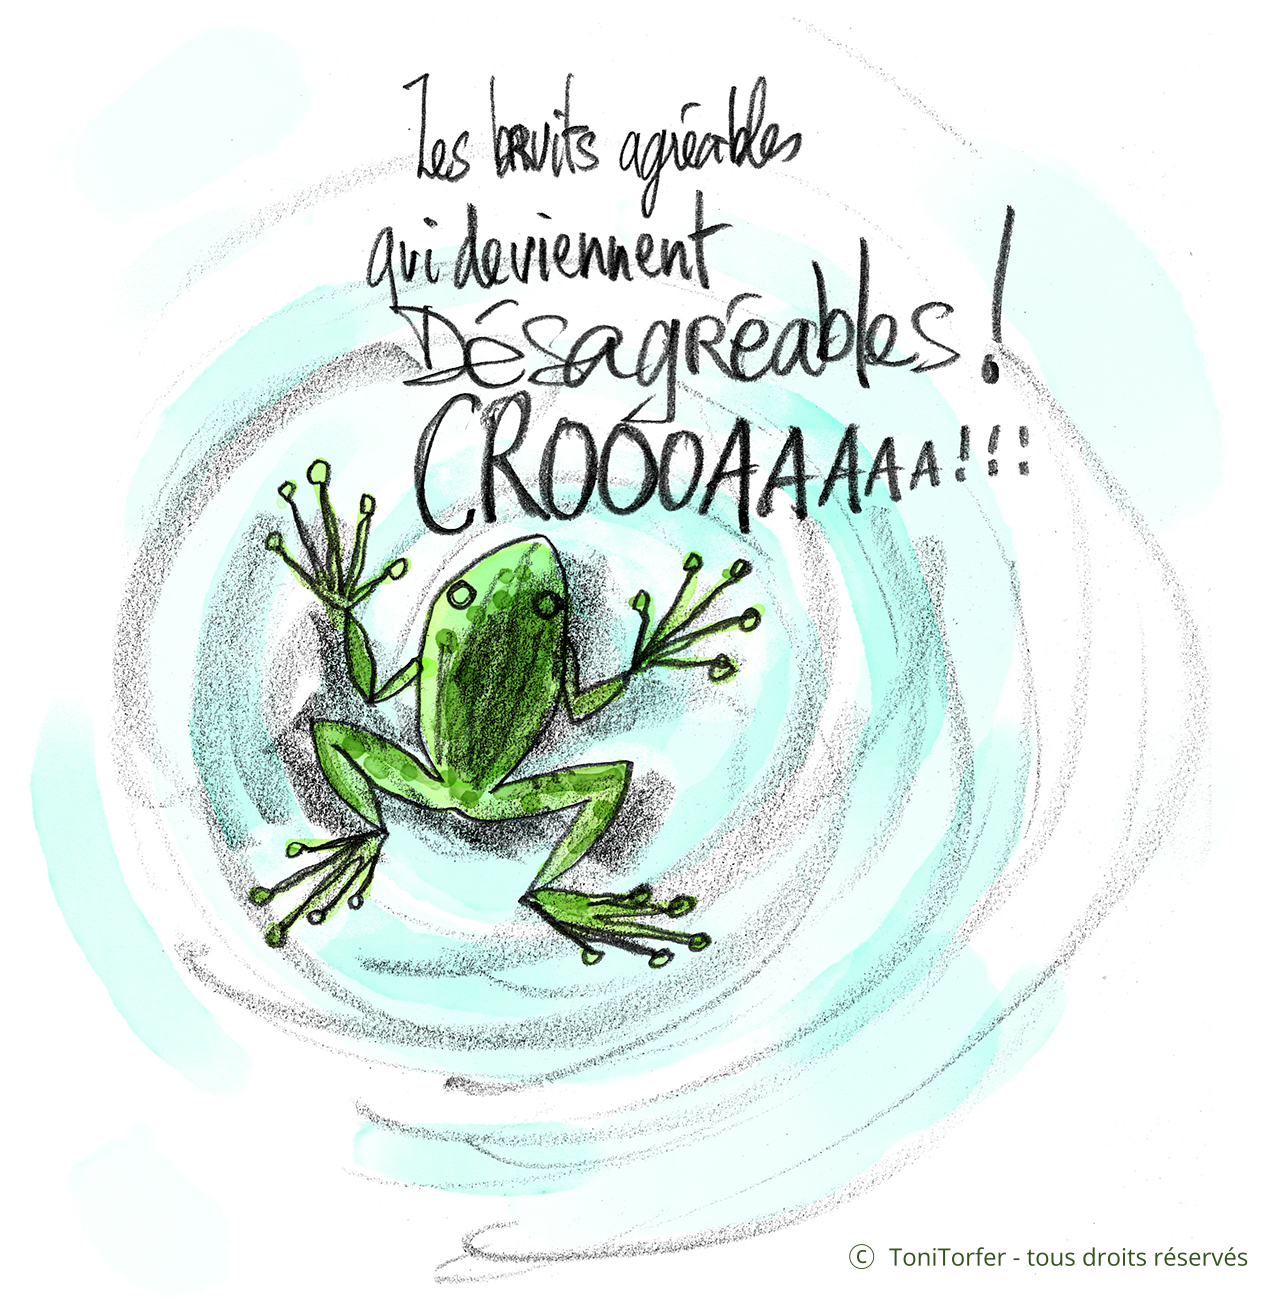 Les bruits agréables
qui deviennent
Désagréables!
CROÓOAAAAA!!!
© ToniTorfer - tous droits réservés